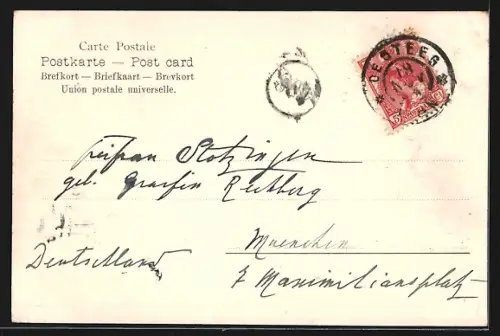 Carte Postale
Postkarte — Post card
Brefkort — Briefkaart — Brevkort
Union postale universelle.
DE STEEG
5
Freifrau Stotzingen
geb. Graefin Rechberg
Muenchen
Deutschland
7 Maximiliansplatz